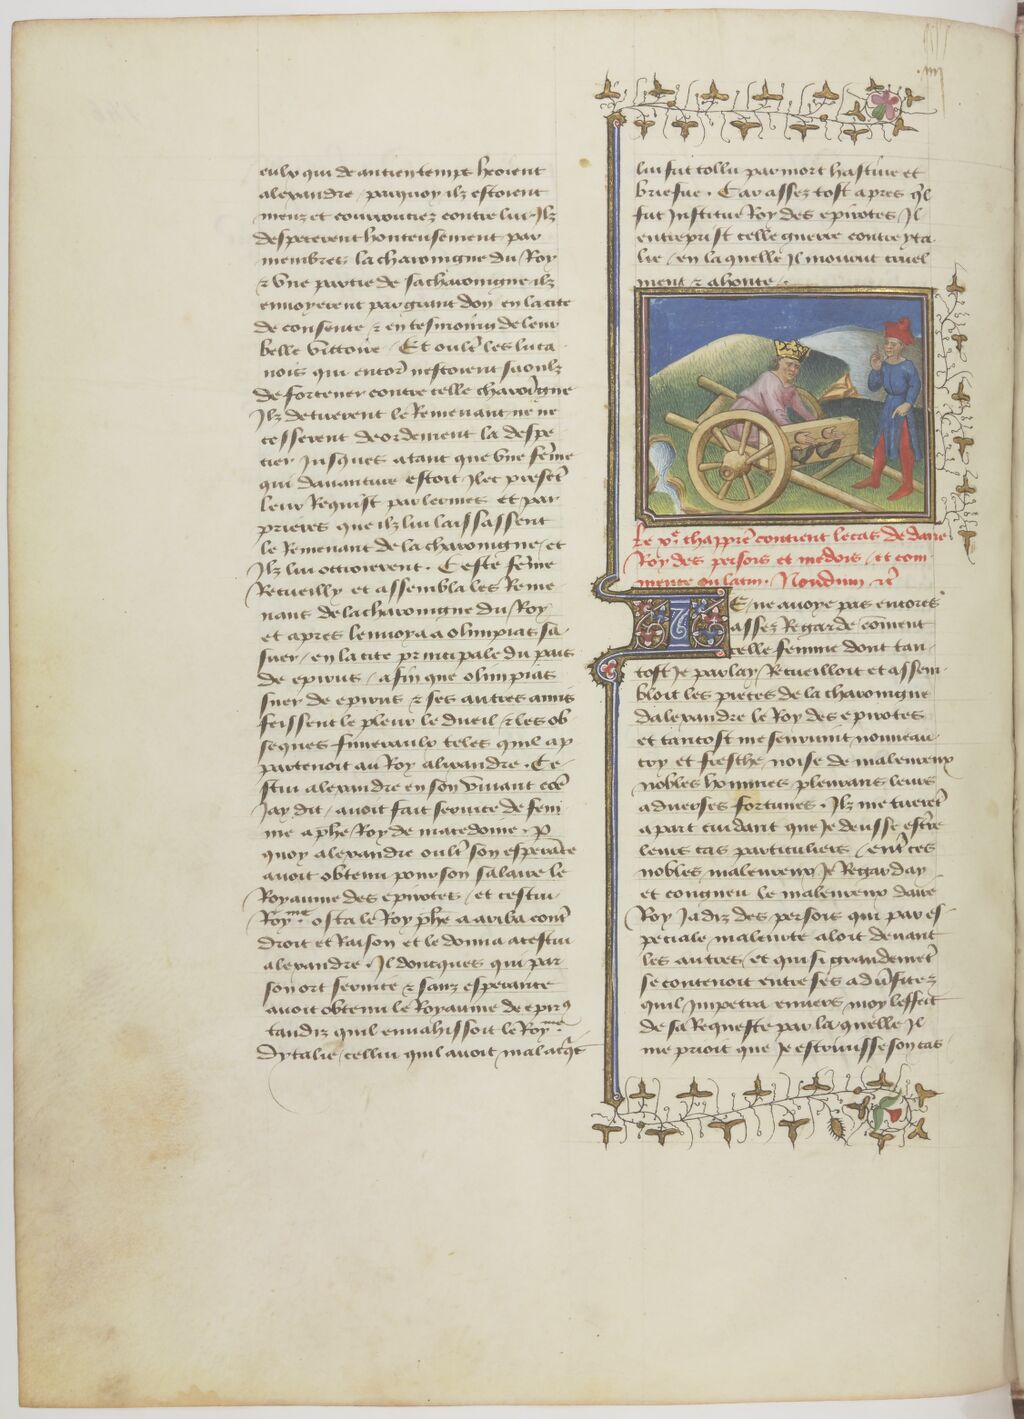 eulx qui de ancien temps heoient
alexandre, parquoy ilz estoient
meuz et courrouciez contre lui. Ilz
despecerent honteusement par
membres la charoingne du Roy
⁊ vne partie de sa charoingne ilz
enuoyerent par grant don en la cite
de consente ⁊ en tesmoing de leur
belle victoire. Et oult les luca
nois qui encor nestoient saoulz
de forcener contre celle charoingne
Ilz detirerent le Remenant ne ne
cesserent deordement la despe
cier Jusques atant que vne feme
qui dauanture estoit ilec present
leur Requist par lermes et par
prieres que ilz lui laissassent
le Remenant de la charoingne, et
Ilz lui octroierent. Ceste feme
Recueilly et assembla les Reme
nans de la charoingne du Roy
et apres lenuoya a olimpias sa
suer, en la cite principale du pais
de epirus, afin que olimpias
suer de epirus ⁊ ses autres amis
feissent le pleur le dueil ⁊ les ob
seques funeraulx telez quil ap
partenoit au Roy alixandre. Ce
stui alexandre en son viuant coe
Jay dit, auoit fait seruice de fem
me a phe Roy de macedoine. p
quoy alexandre oult son esperace
auoit obtenu pour son salaire le
Royaume des epirotes, et cestui
Roy.me osta le Roy phe a ariba cont
droit et Raison et le donna a cestui
alexandre. Il doncques qui par
son ort seruice ⁊ sanz esperance
auoit obtenu le Royaume de epir9
tandiz quil enuahissoit le Roy.me
dytalie, cellui quil auoit mal acqs
lui fut tollu par mort hastiue et
briefue. Car assez tost apres ql
fut Institue Roy des epirotes, Il
entreprist celle guerre contre yta
lie, en laquelle Il mourut cruel
ment ⁊ a honte.
Le xe. chappre contient le cas de daire
Roy des persois et medois, et com
mence ou latin. Nondum ⁊c
Je ne auoye pas encores
assez Regarde coment
celle femme dont tan
tost Je parlay, Recueilloit et assem
bloit les pieces de la charoingne
dalexandre le Roy des epirotes
et tantost me seuruint nouueau
cry et fresche noise de maleureux
nobles hommes pleurans leurs
aduerses fortunes. Ilz me tireret
a part cuidant que Je deusse escrire
leurs cas particuliers, entre ces
nobles maleureux Je Regarday
et congneu le maleureux daire
Roy Jadiz des persois qui par es
peciale maleurte aloit deuant
les autres, et qui si grandemet
se contenoit entre ses aduersitez
quil Impetra enuers moy leffect
de sa Requeste par la quelle Il
me prioit que Je escriuisse son cas